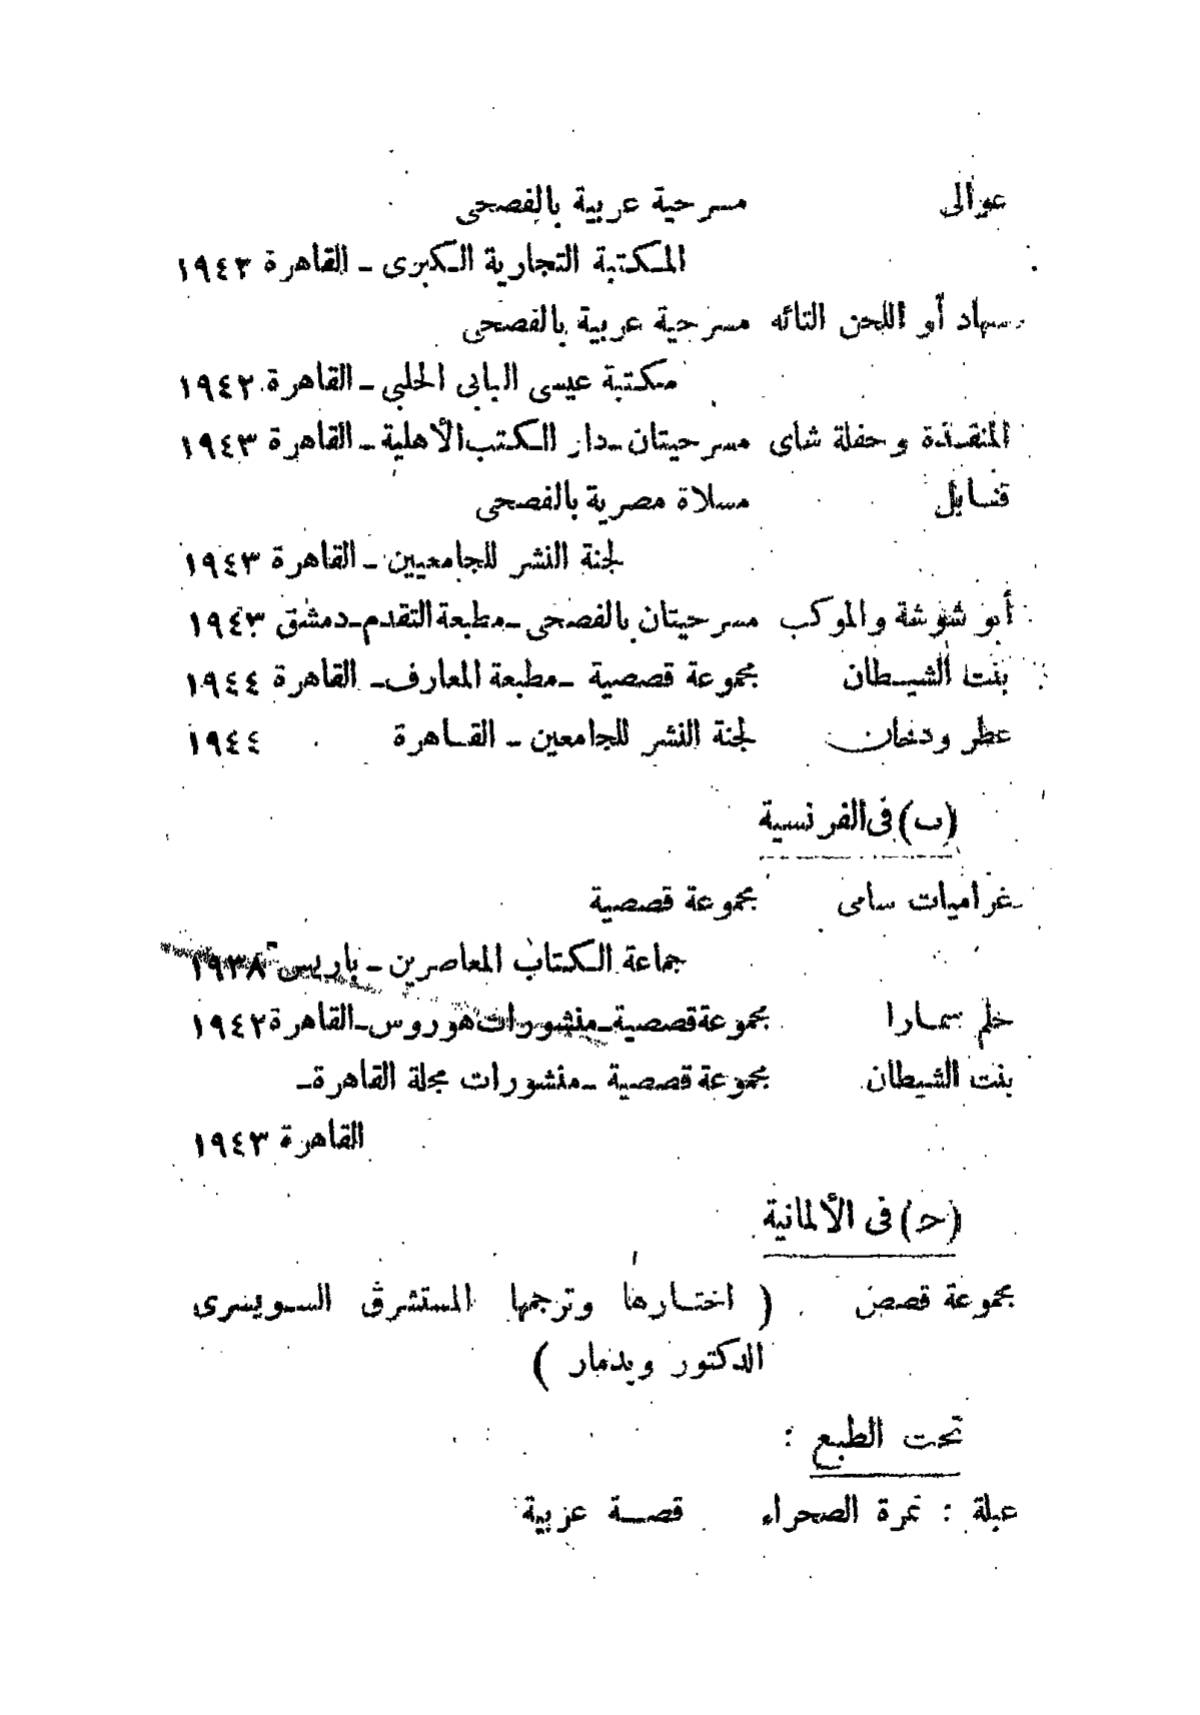 عوالى مسرحية عربية بالفصحى
المكتبة التجارية الكبرى ـ القاهرة ١٩٤٣
سهاد أو اللحن التائه مسرحية عربية بالفصحى
مكتبة عيسى البابى الحلبي ـ القاهرة ١٩٤٢
المنقذة وحفلة شاى مسرحيتان ـ دار الكتب الأهلية ـ القاهرة ١٩٤٣
قنابل مسلاة مصرية بالفصحى
لجنة النشر للجامعيين ـ القاهرة ١٩٤٣
أبو شوشة والموكب مسرحيتان بالفصحى ـ مطبعة التقدم ـ دمشق ١٩٤٣
بنت الشيطان مجموعة قصصية ـ مطبعة المعارف ـ القاهرة ١٩٤٤
عطر ودخان لجنة النشر للجامعين ـ القاهرة ١٩٤٤
(ب) فى الفرنسية
غراميات سامى مجموعة قصصية
جماعة الكتاب المعاصرين ـ باريس ١٩٣٨
حلم سمارا مجموعة قصصية ـ منشورات هوروس ـ القاهرة ١٩٤٢
بنت الشيطان مجموعة قصصية ـ منشورات مجلة القاهرة ـ
القاهرة ١٩٤٣
(ح) فى الألمانية
مجموعة قصص ( اختارها وترجمها المستشرق السويسرى
الدكتور ويدمار )
تحت الطبع :
عبلة : نمرة الصحراء قصة عربية